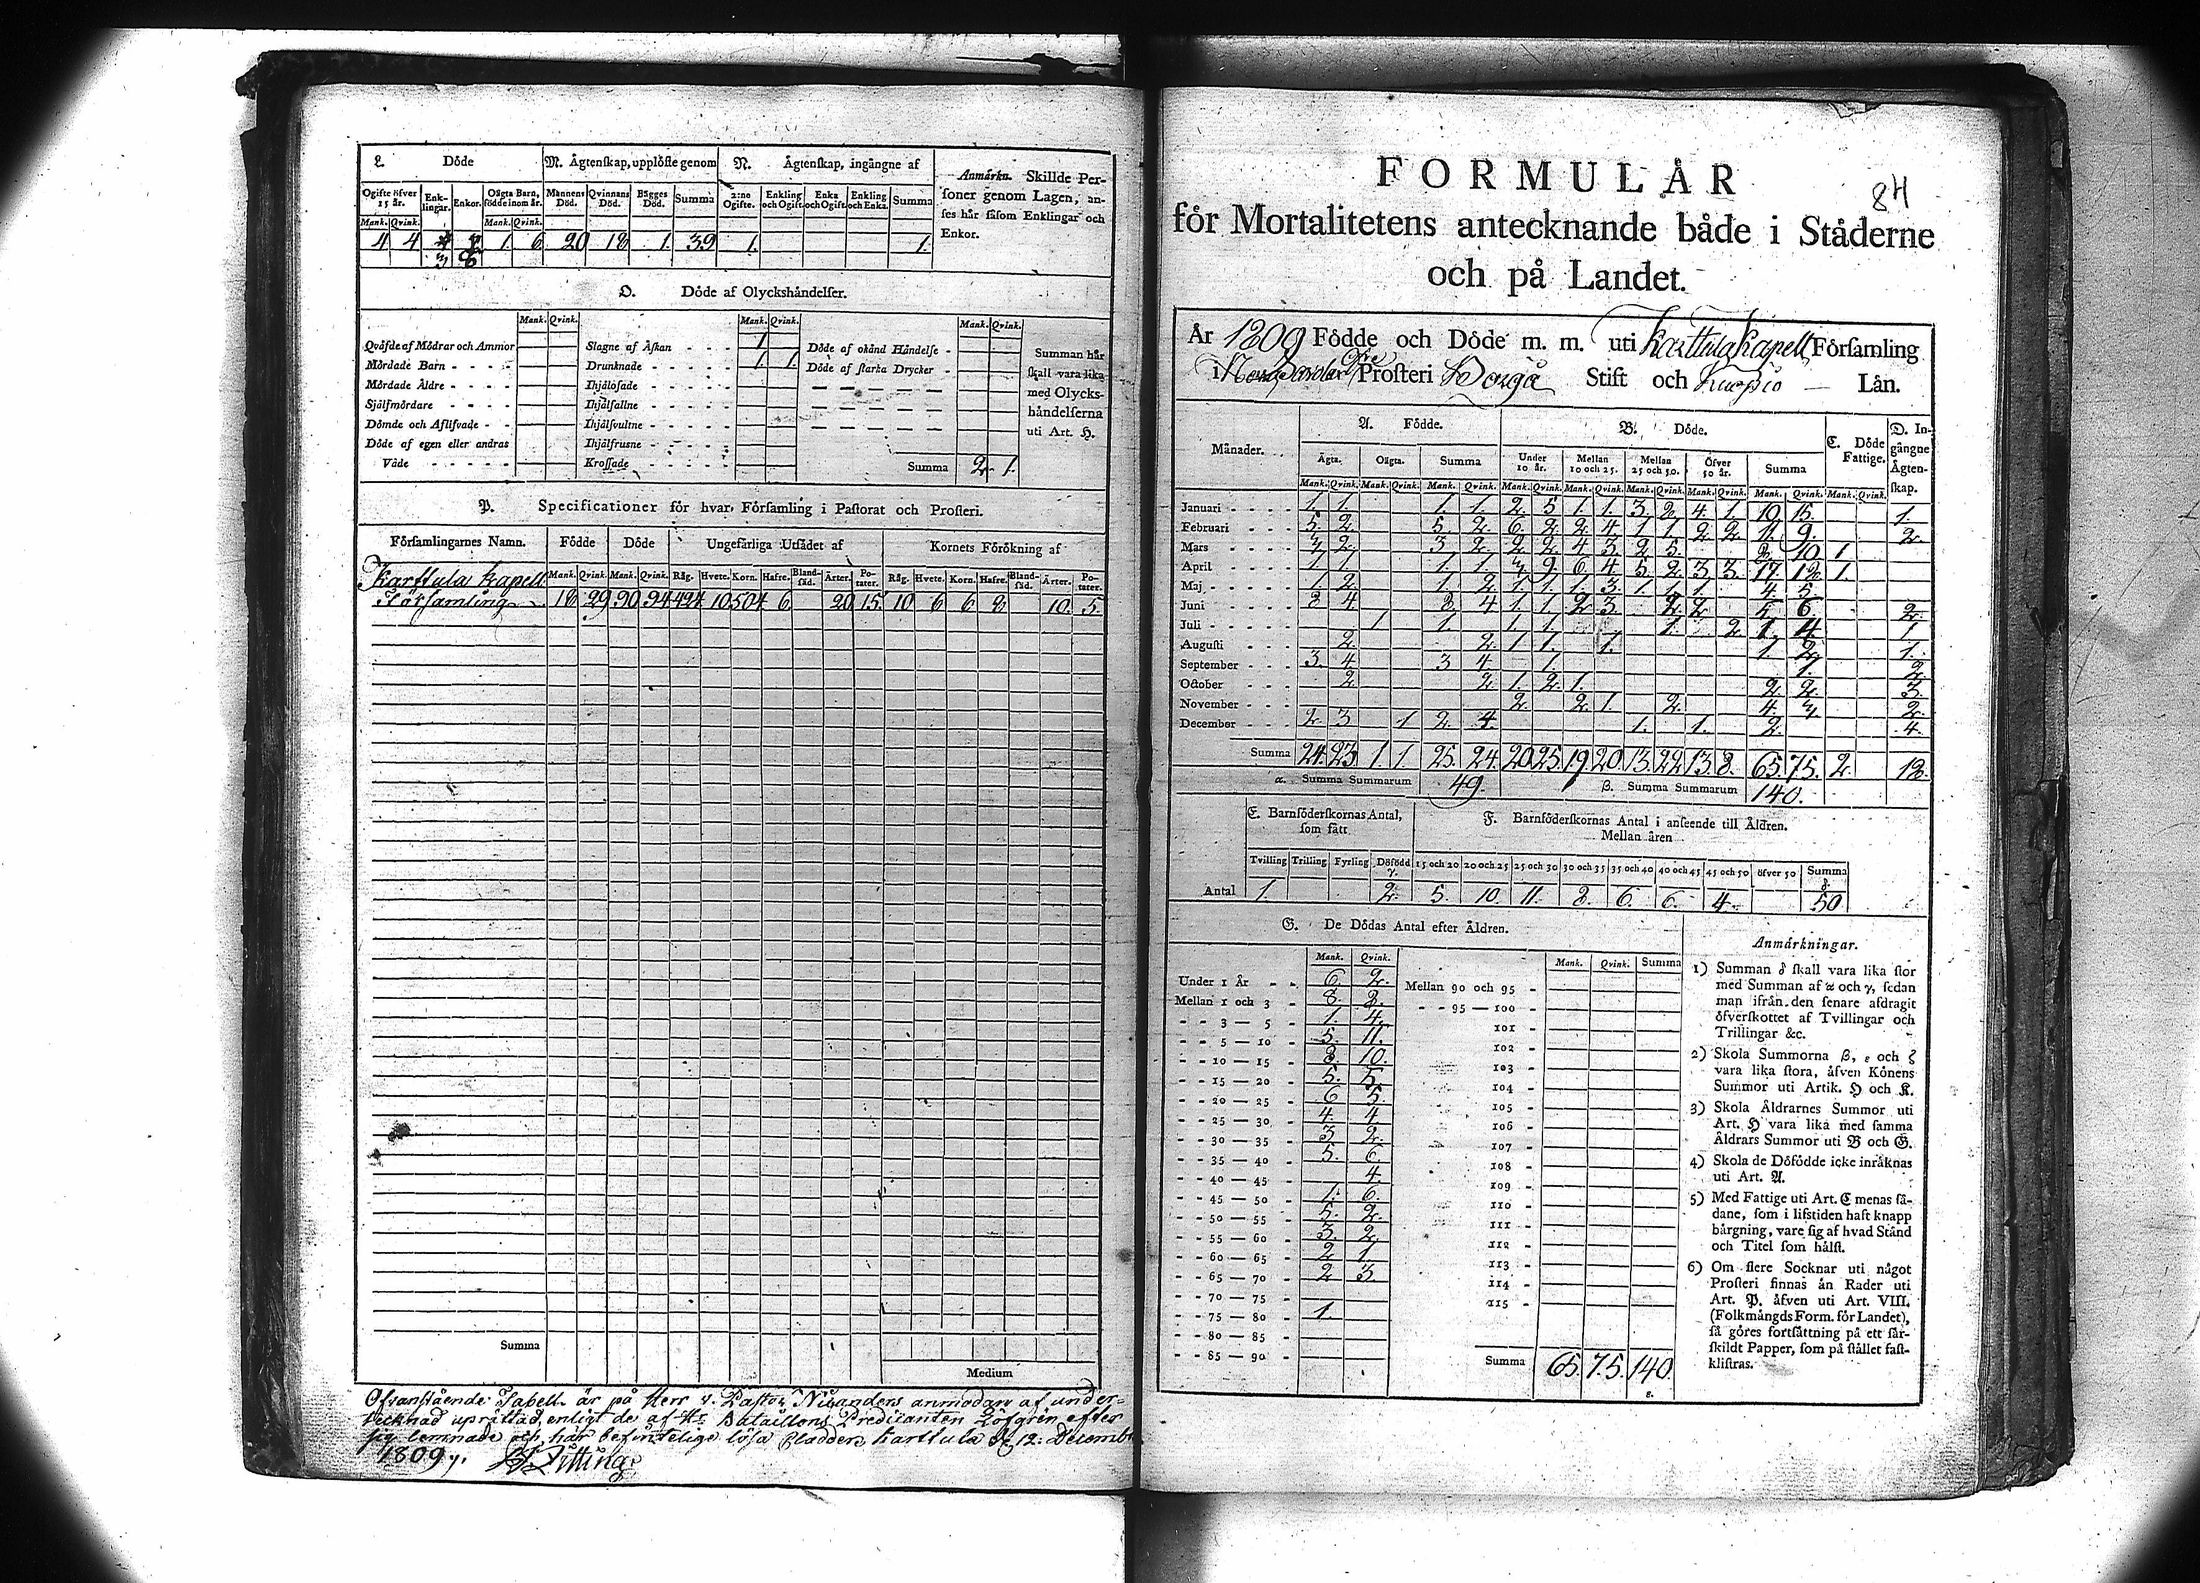 L. Döde
M. Ägtenskap, upplöste genom
N. Ägtenskap, ingångne af
Anmärkn. Skillde Personer genom Lagen, anses här såsom Enklingar och Enkor.
Ogifte öfver 15 år. Enklingar. Enkor. Oägta Barn, födde inom år. Mannens Död. Qvinnans Död. Bägges Död. Summa 2:ne Ogifte. Enkling och Ogift. Enka och Ogift. Enkling och Enka. Summa
Mank. Qvink. Mank. Qvink.
4 4 1. 6 20 18 1. 39 1. 1.
3 6
O. Döde af Olyckshändelser.
Mank. Qvink. Mank. Qvink. Mank. Qvink.
Qväfde af Mödrar och Ammor
Mördade Barn
Mördade Äldre
Sjelfmördare
Dömde och Aflifvade
Döde af egen eller andras
Våde
Slagne af Åskan 1
Drunknade 1. 1.
Ihjälösade
Ihjälfallne
Ihjälsvultne
Ihjälfrusne
Krossade
Döde af okänd Händelse
Döde af starka Drycker
Summa 2. 1.
Summan här skall vara lika med Olyckshändelserna uti Art. H.
P. Specificationer för hvar Församling i Pastorat och Prosteri.
Församlingarnes Namn. Födde Döde Ungefärliga Utsädet af Kornets Förökning af
Mank. Qvink. Mank. Qvink. Råg. Hvete. Korn. Hafre. Blandsäd. Ärter. Potater. Råg. Hvete. Korn. Hafre. Blandsäd. Ärter. Potater.
Karttula Kapell
Församling 18 29 90 94 424 10 504 6 20 15 10 6 6 8 10. 5.
Summa
Medium
Ofvanstående Tabell är på Herr v. Pastor Nicanders anmodan af under-
tecknad uprättad, enligt de af Hr Bataillons Predicanten Löfgren efter
sig lemnade och här befintelige lösa Bladder, Karttula d. 12: Decemb
1809
84
FORMULÄR
för Mortalitetens antecknande både i Städerne
och på Landet.
År 1809 Födde och Döde m. m. uti Karttula Kapell Församling
i Prosteri Borgå Stift och Kuopio Län.
Månader. A. Födde. B. Döde. C. Döde Fattige. D. Ingångne Ägtenskap.
Ägta. Oägta. Summa Under 10 år. Mellan 10 och 25. Mellan 25 och 50. Öfver 50 år. Summa
Mank. Qvink. Mank. Qvink. Mank. Qvink. Mank. Qvink. Mank. Qvink. Mank. Qvink. Mank. Qvink. Mank. Qvink. Mank. Qvink.
Januari 1. 1. 1. 1. 2. 5 1 1. 3. 2. 4. 1. 10 15. 1.
Februari 5. 2. 5. 2. 6. 2. 2. 4. 1. 1 2. 2. 11. 9. 2.
Mars 3 2. 3 2. 2 2. 4 3. 2 5. 8 10. 1
April 1. 1. 1. 1. 3 9. 6. 4. 5. 2 3 3. 17 18 1.
Maj 1 2. 1. 2. 1. 1. 1. 3. 1. 1. 1. 4. 5.
Juni 8 4 8. 4 1. 1. 2 3. 2 2. 5 6. 2.
Juli 1 1. 1. 1. 1. 2. 1. 4 1
Augusti 2. 2. 1 1. 1. 1. 2. 1.
September 3. 4. 3 4. 1. 1. 2
October 2 2. 1. 2. 1. 2. 2. 3.
November 2. 2. 1. 2. 4. 3. 2.
December 2. 3 1 2. 4. 1. 1. 2. 4.
Summa 24. 23 1 1 25. 24. 20. 25. 19. 20. 13. 22. 13. 8. 65. 75. 2. 18.
α. Summa Summarum 49. β. Summa Summarum 140.
E. Barnföderskornas Antal, som fått
F. Barnföderskornas Antal i anseende till Åldren.
Mellan åren
Tvilling Trilling Fyrling Dödfödd γ. 15 och 20 20 och 25 25 och 30 30 och 35 35 och 40 40 och 45 45 och 50 öfver 50 Summa δ
Antal 1. 2. 5. 10. 11. 8. 6. 6. 4. 50
G. De Dödas Antal efter Åldren.
Mank. Qvink. Mank. Qvink. Summa
Under 1 År 6. 2.
Mellan 1 och 3 8. 8.
3 — 5 1. 4.
5 — 10 5. 11.
10 — 15 8. 10.
15 — 20 5. 5.
20 — 25 6 5.
25 — 30 4. 4
30 — 35 3 2.
35 — 40 5. 6.
40 — 45 4.
45 — 50 1. 6.
50 — 55 5. 2.
55 — 60 3. 2.
60 — 65 2 1.
65 — 70 2 3.
70 — 75
75 — 80 1.
80 — 85
85 — 90
Mellan 90 och 95
95 — 100
101
102
103
104
105
106
107
108
109
110
111
112
113
114
115
Summa 65. 75. 140.
ε.
Anmärkningar.
1) Summan δ skall vara lika stor
med Summan af α och γ, sedan
man ifrån den senare afdragit
öfverskottet af Tvillingar och
Trillingar &c.
2) Skola Summorna β, ε och ζ
vara lika stora, äfven Könens
Summor uti Artik. H och K.
3) Skola Åldrarnes Summor uti
Art. H vara lika med samma
Åldrars Summor uti B och G.
4) Skola de Döfödde icke inräknas
uti Art. A.
5) Med Fattige uti Art. C menas så-
dane, som i lifstiden haft knapp
bärgning, vare sig af hvad Stånd
och Titel som hälst.
6) Om flere Socknar uti något
Prosteri finnas än Rader uti
Art. P. äfven uti Art. VIII.
(Folkmängds Form. för Landet),
så göres fortsättning på ett sär-
skildt Papper, som på stället fast-
klistras.